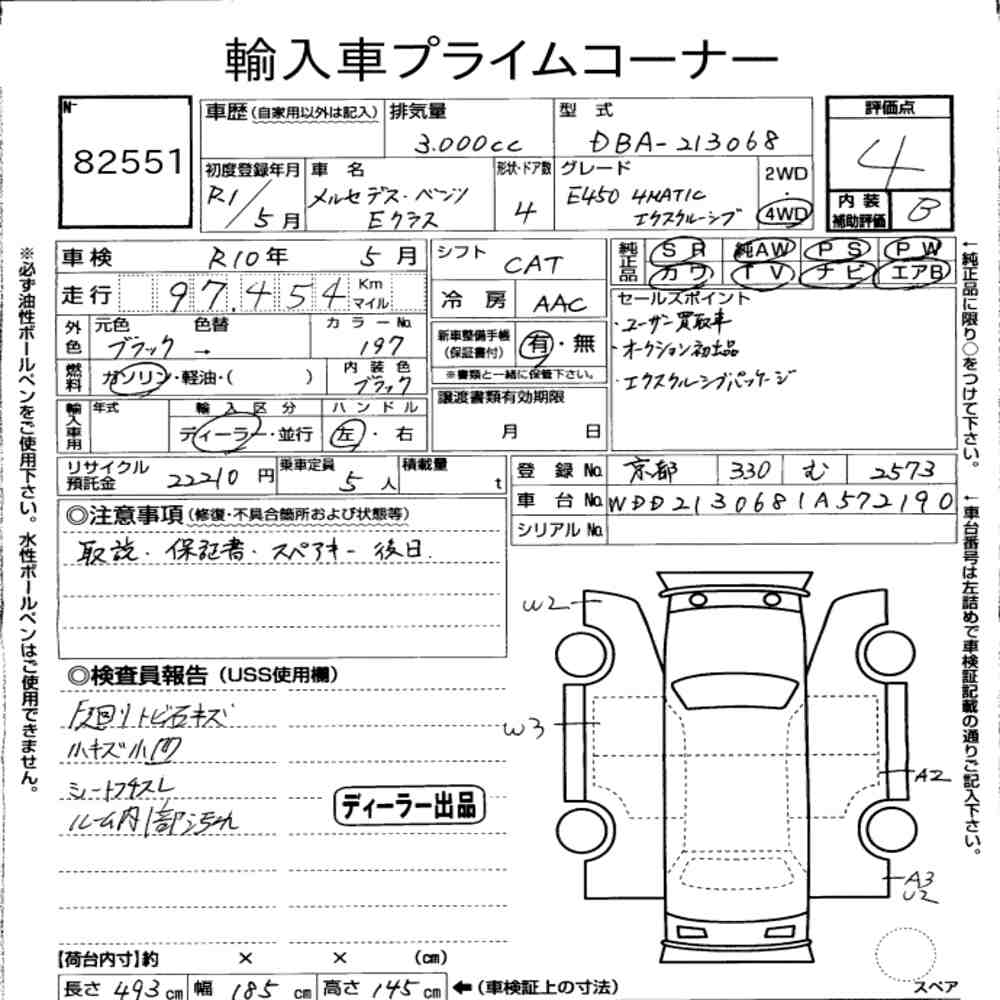 輸入車プライムコーナー
N-
82551
車歴(自家用以外は記入)
排気量
3.000cc
型式
DBA-213068
評価点
4
初度登録年月
R1/5月
車名
メルセデス・ベンツ
Eクラス
形状・ドア数
4
グレード
E450 4MATIC
エクスクルーシブ
2WD
・
4WD
内装
補助評価
B
車検 R10年 5月
走行 97.454 Km
マイル
外色
元色 色替 カラーNo.
ブラック → 197
燃料
ガソリン・軽油・( )
内装色
ブラック
輸入車用
年式
輸入区分
ディーラー・並行
ハンドル
左・右
シフト
CAT
冷房 AAC
新車整備手帳
(保証書付)
有・無
※書類と一緒に保管下さい。
譲渡書類有効期限
月 日
純正品
SR 純AW PS PW
カワ TV ナビ エアB
セールスポイント
・ユーザー買取車
・オークション初出品
・エクスクルーシブパッケージ
リサイクル
預託金
22210円
乗車定員
5人
積載量
t
登録No. 京都 330 む 2573
車台No. WDD2130681A572190
シリアルNo.
◎注意事項(修復・不具合箇所および状態等)
取説・保証書・スペアキー 後日.
◎検査員報告(USS使用欄)
F廻りトビ石キズ
小キズ小凹
シートフチスレ
ルーム内1部汚れ
ディーラー出品
W2
W3
A2
A3
U2
スペア
【荷台内寸】約 × × (cm)
長さ 493cm 幅 185cm 高さ 145cm ←(車検証上の寸法)
※必ず油性ボールペンをご使用下さい。水性ボールペンはご使用できません。
←純正品に限り○をつけて下さい。
←車台番号は左詰めで車検証記載の通りご記入下さい。